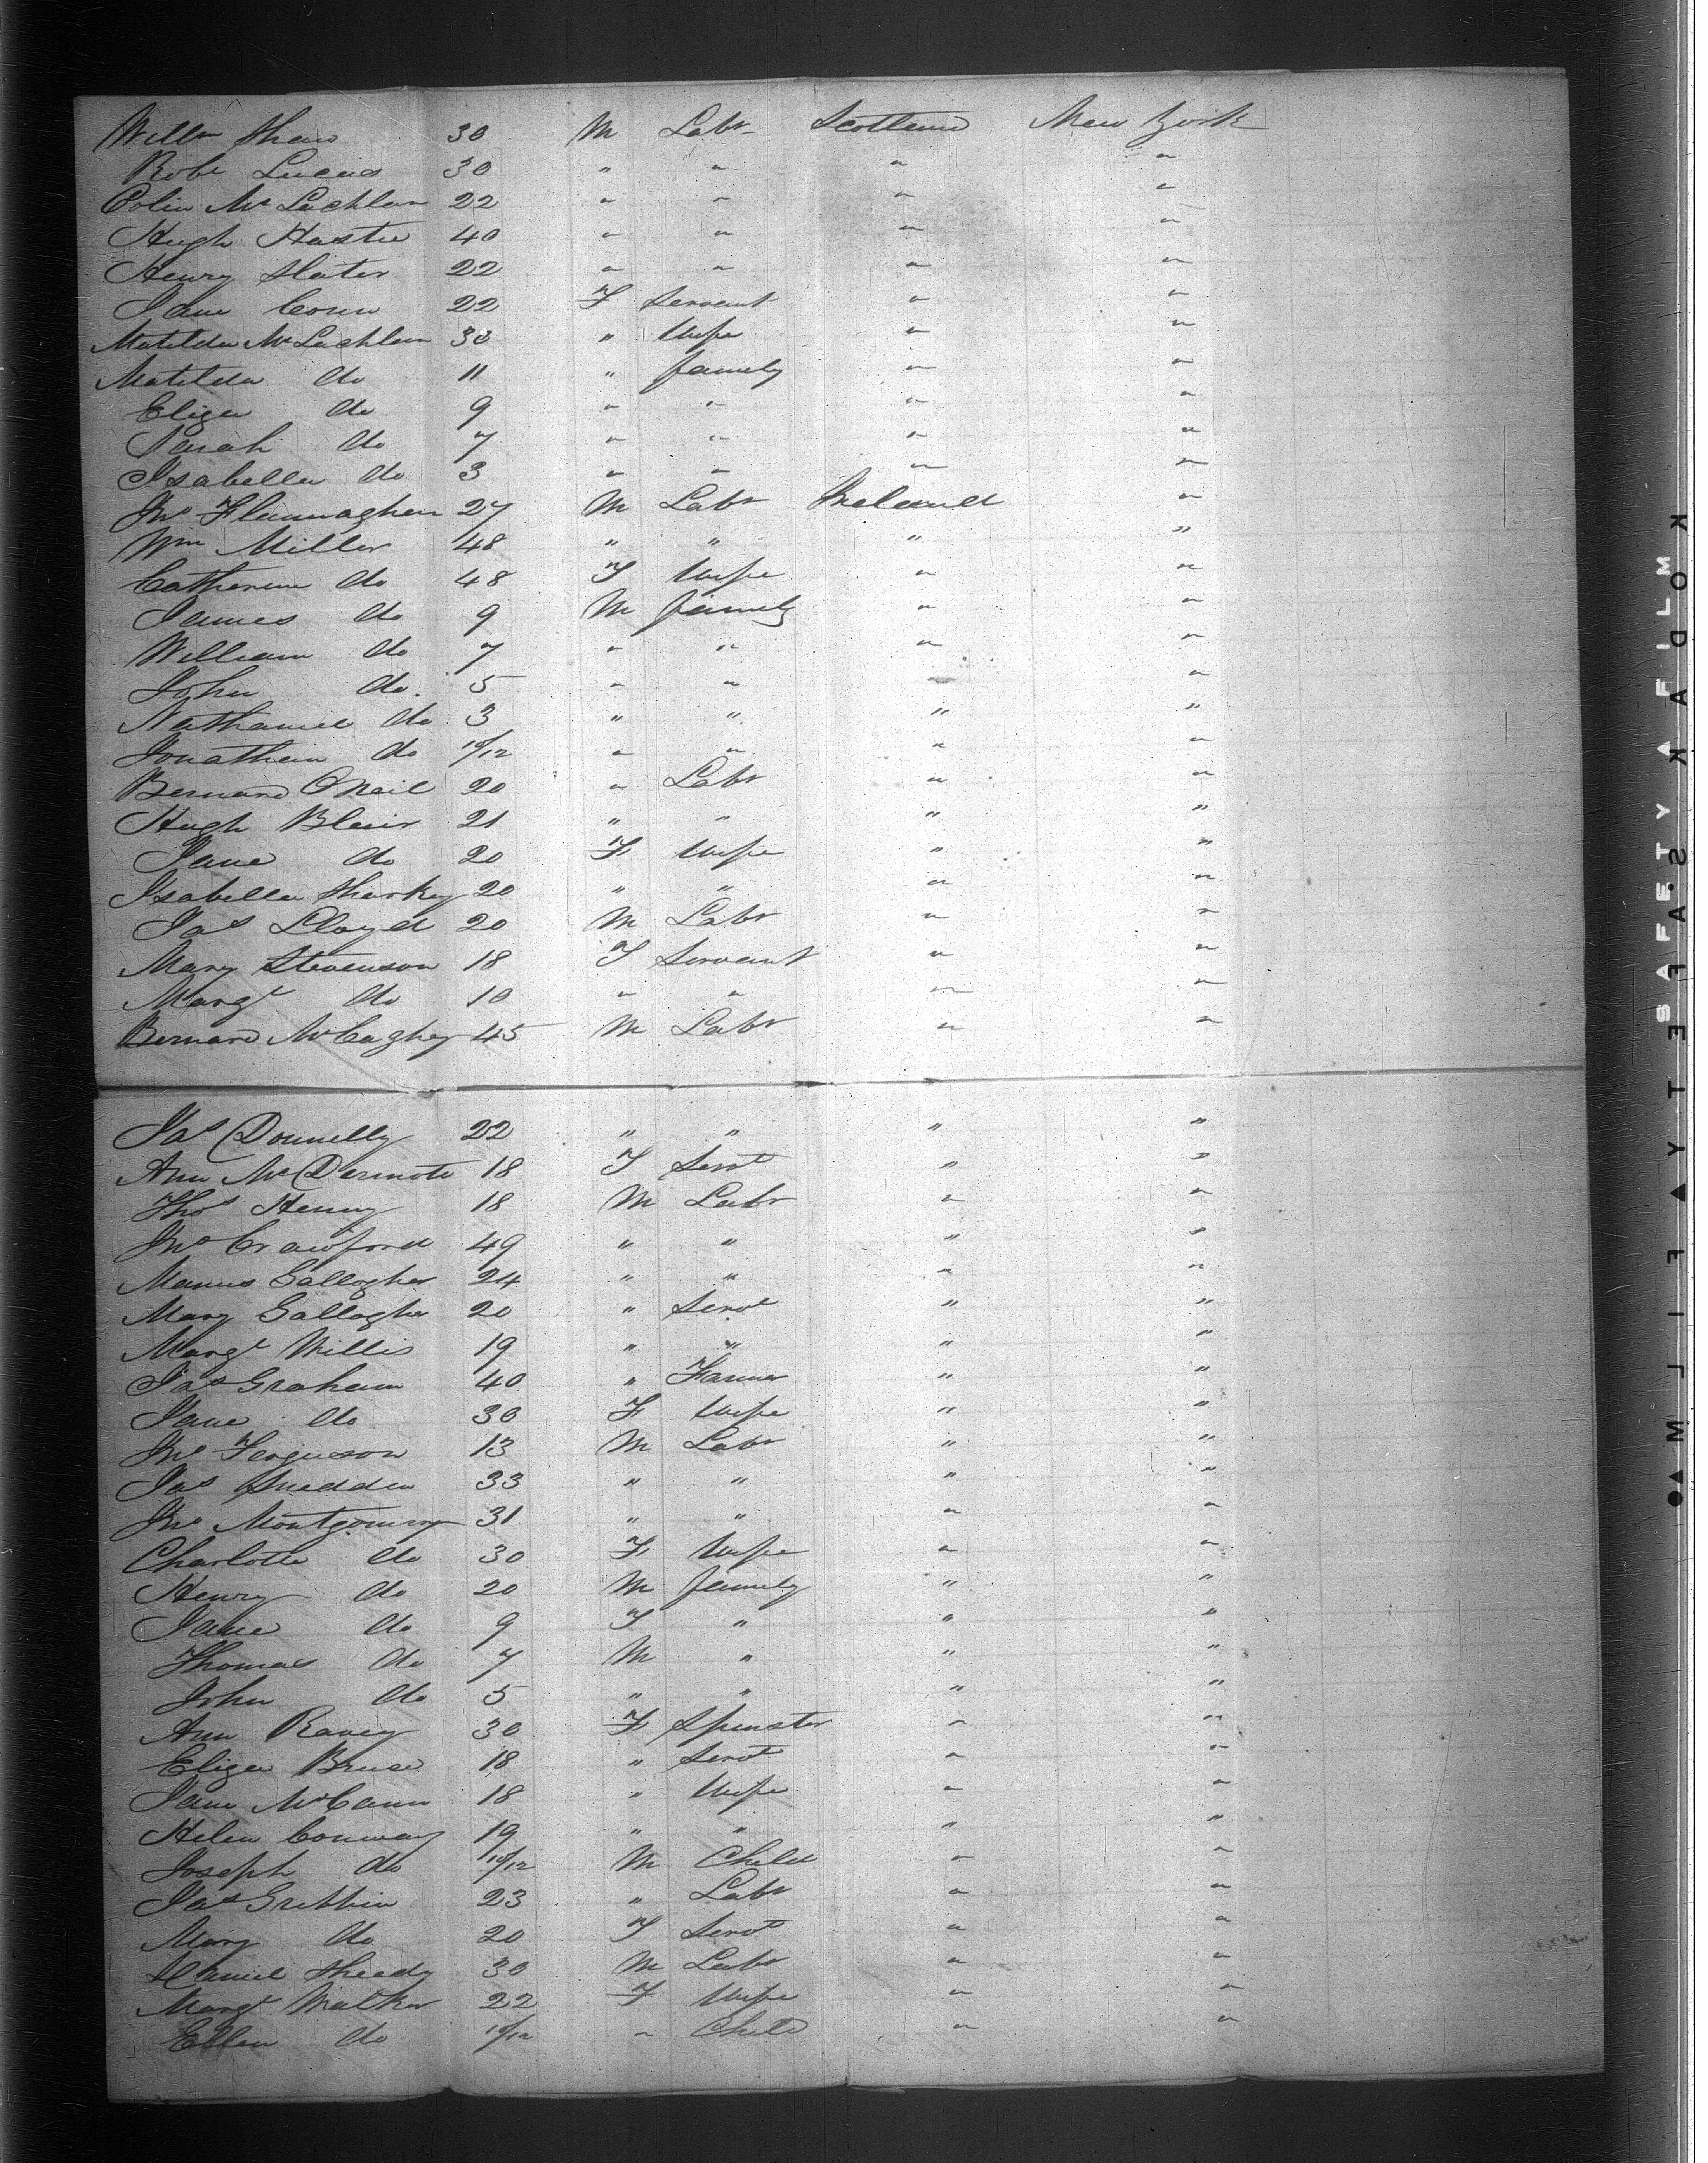 Willm Shaw 30 M Labr Scotland New York
Robt Lucas 30 " " " "
Colin McLachlan 22 " " " "
Hugh Hastie 40 " " " "
Henry Slater 22 " " " "
Jane Conn 22 F Servant " "
Matilda McLachlan 30 " Wife " "
Matilda do 11 " family " "
Eliza do 9 " " " "
Sarah do 7 " " " "
Isabella do 3 " " " "
Jno Flannaghen 27 M Labr Ireland "
Wm Miller 48 " " " "
Catherine do 48 F Wife " "
James do 9 M family " "
William do 7 " " " "
John do. 5 " " " "
Nathaniel do 3 " " " "
Jonathan do 10/12 " " " "
Bernard O'Neil 20 " Labr " "
Hugh Blair 21 " " " "
Jane do 20 F Wife " "
Isabella Sharkey 20 " " " "
Jas Lloyd 20 M Labr " "
Mary Stevenson 18 F Servant " "
Margt do 10 " " " "
Bernard McCaghey 45 M Labr " "
Jas Donnelly 22 " " " "
Ann McDermott 18 F Servt " "
Thos Henry 18 M Labr " "
Jno Crawford 49 " " " "
Manus Gallogher 24 " " " "
Mary Gallogher 20 " Servt " "
Margt Willis 19 " " " "
Jas Graham 40 " Farmer " "
Jane do 30 F Wife " "
Jno Ferguson 13 M Labr " "
Jas Snedden 33 " " " "
Jno Montgomery 31 " " " "
Charlotte do 30 F Wife " "
Henry do 20 M family " "
Jane do 9 F " " "
Thomas do 7 M " " "
John do 5 " " " "
Ann Ravey 30 F Spinster " "
Eliza Bruse 18 " Servt " "
Jane McCann 18 " Wife " "
Helen Conway 19 " " " "
Joseph do 10/12 M Child " "
Jas Gribbin 23 " Labr " "
Mary do 20 F Servt " "
Daniel Sheedy 30 M Labr " "
Margt Walker 22 F Wife " "
Ellen do 10/12 " Child " "
SAFETY A FILM
KODAK SAFETY FILM